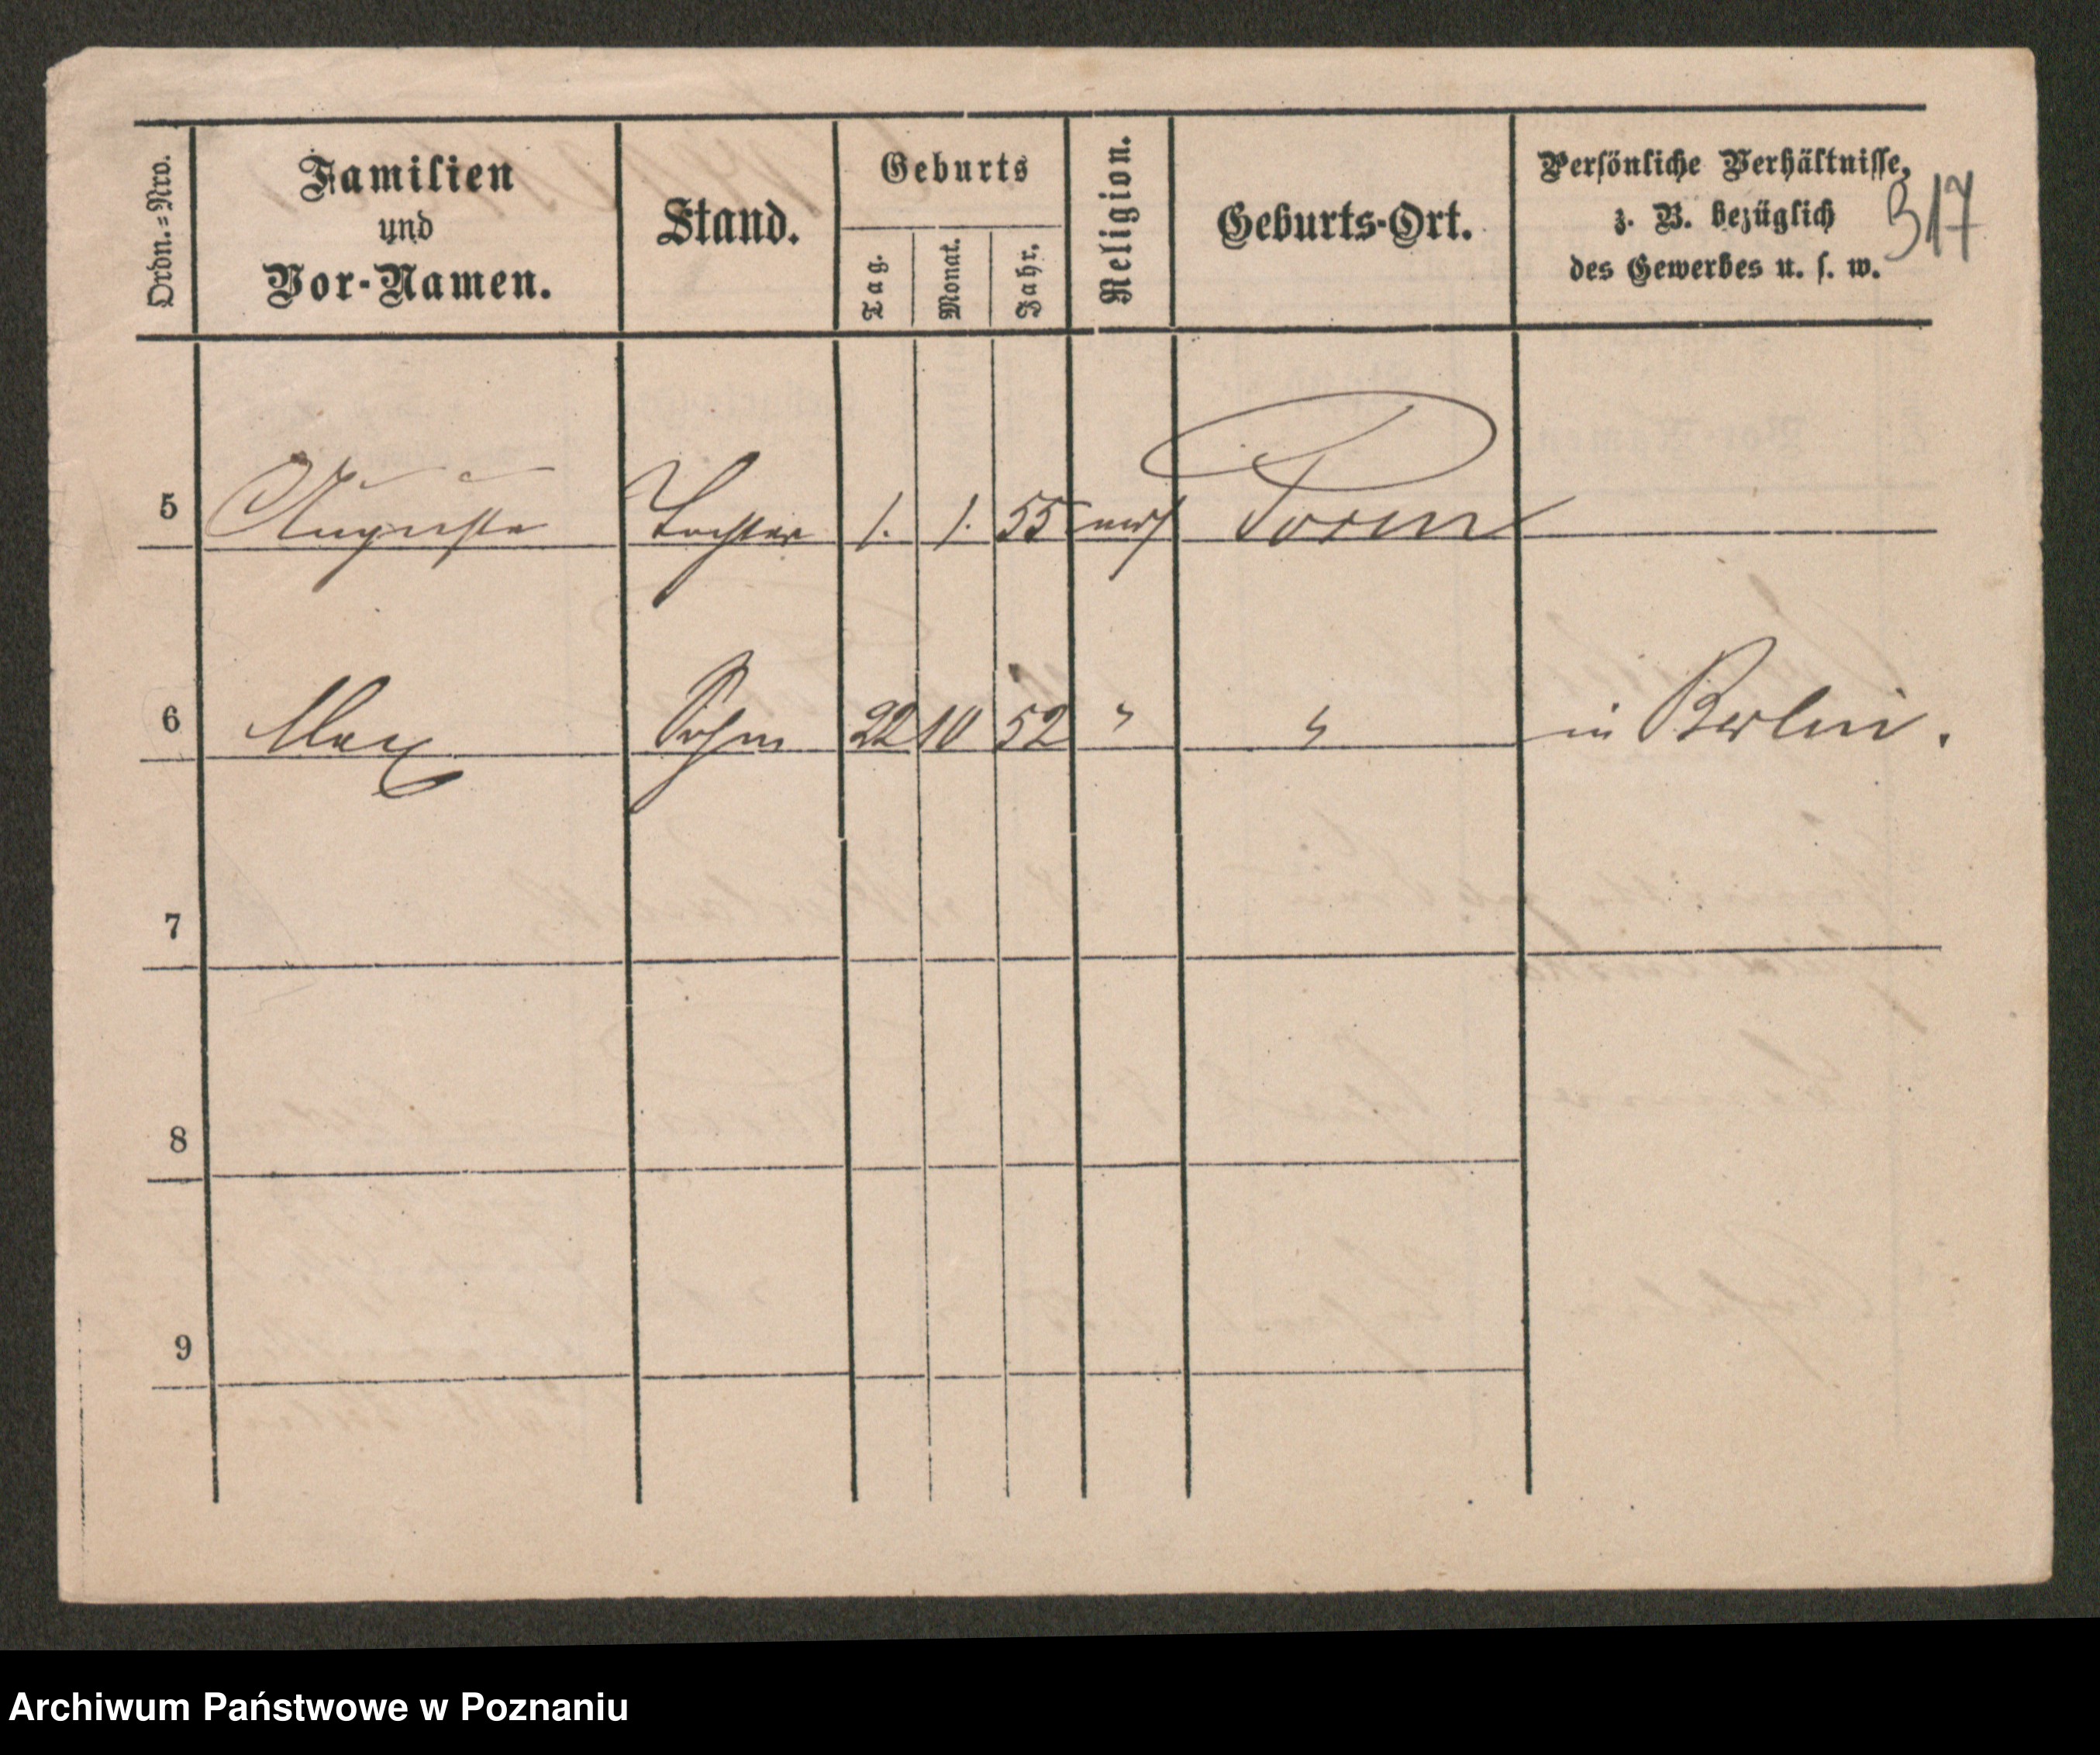 Ordn.=Nro.
Familien
und
Vor-Namen.
Stand.
Geburts
Tag.
Monat.
Jahr.
Religion.
Geburts-Ort.
Persönliche Verhältnisse,
z. B. bezüglich
des Gewerbes u. s. w.
317
5 Auguste Tochter 1. 1. 55 Posen
6 Max Sohn 22 10 52 " " in Berlin.
7
8
9
Archiwum Państwowe w Poznaniu